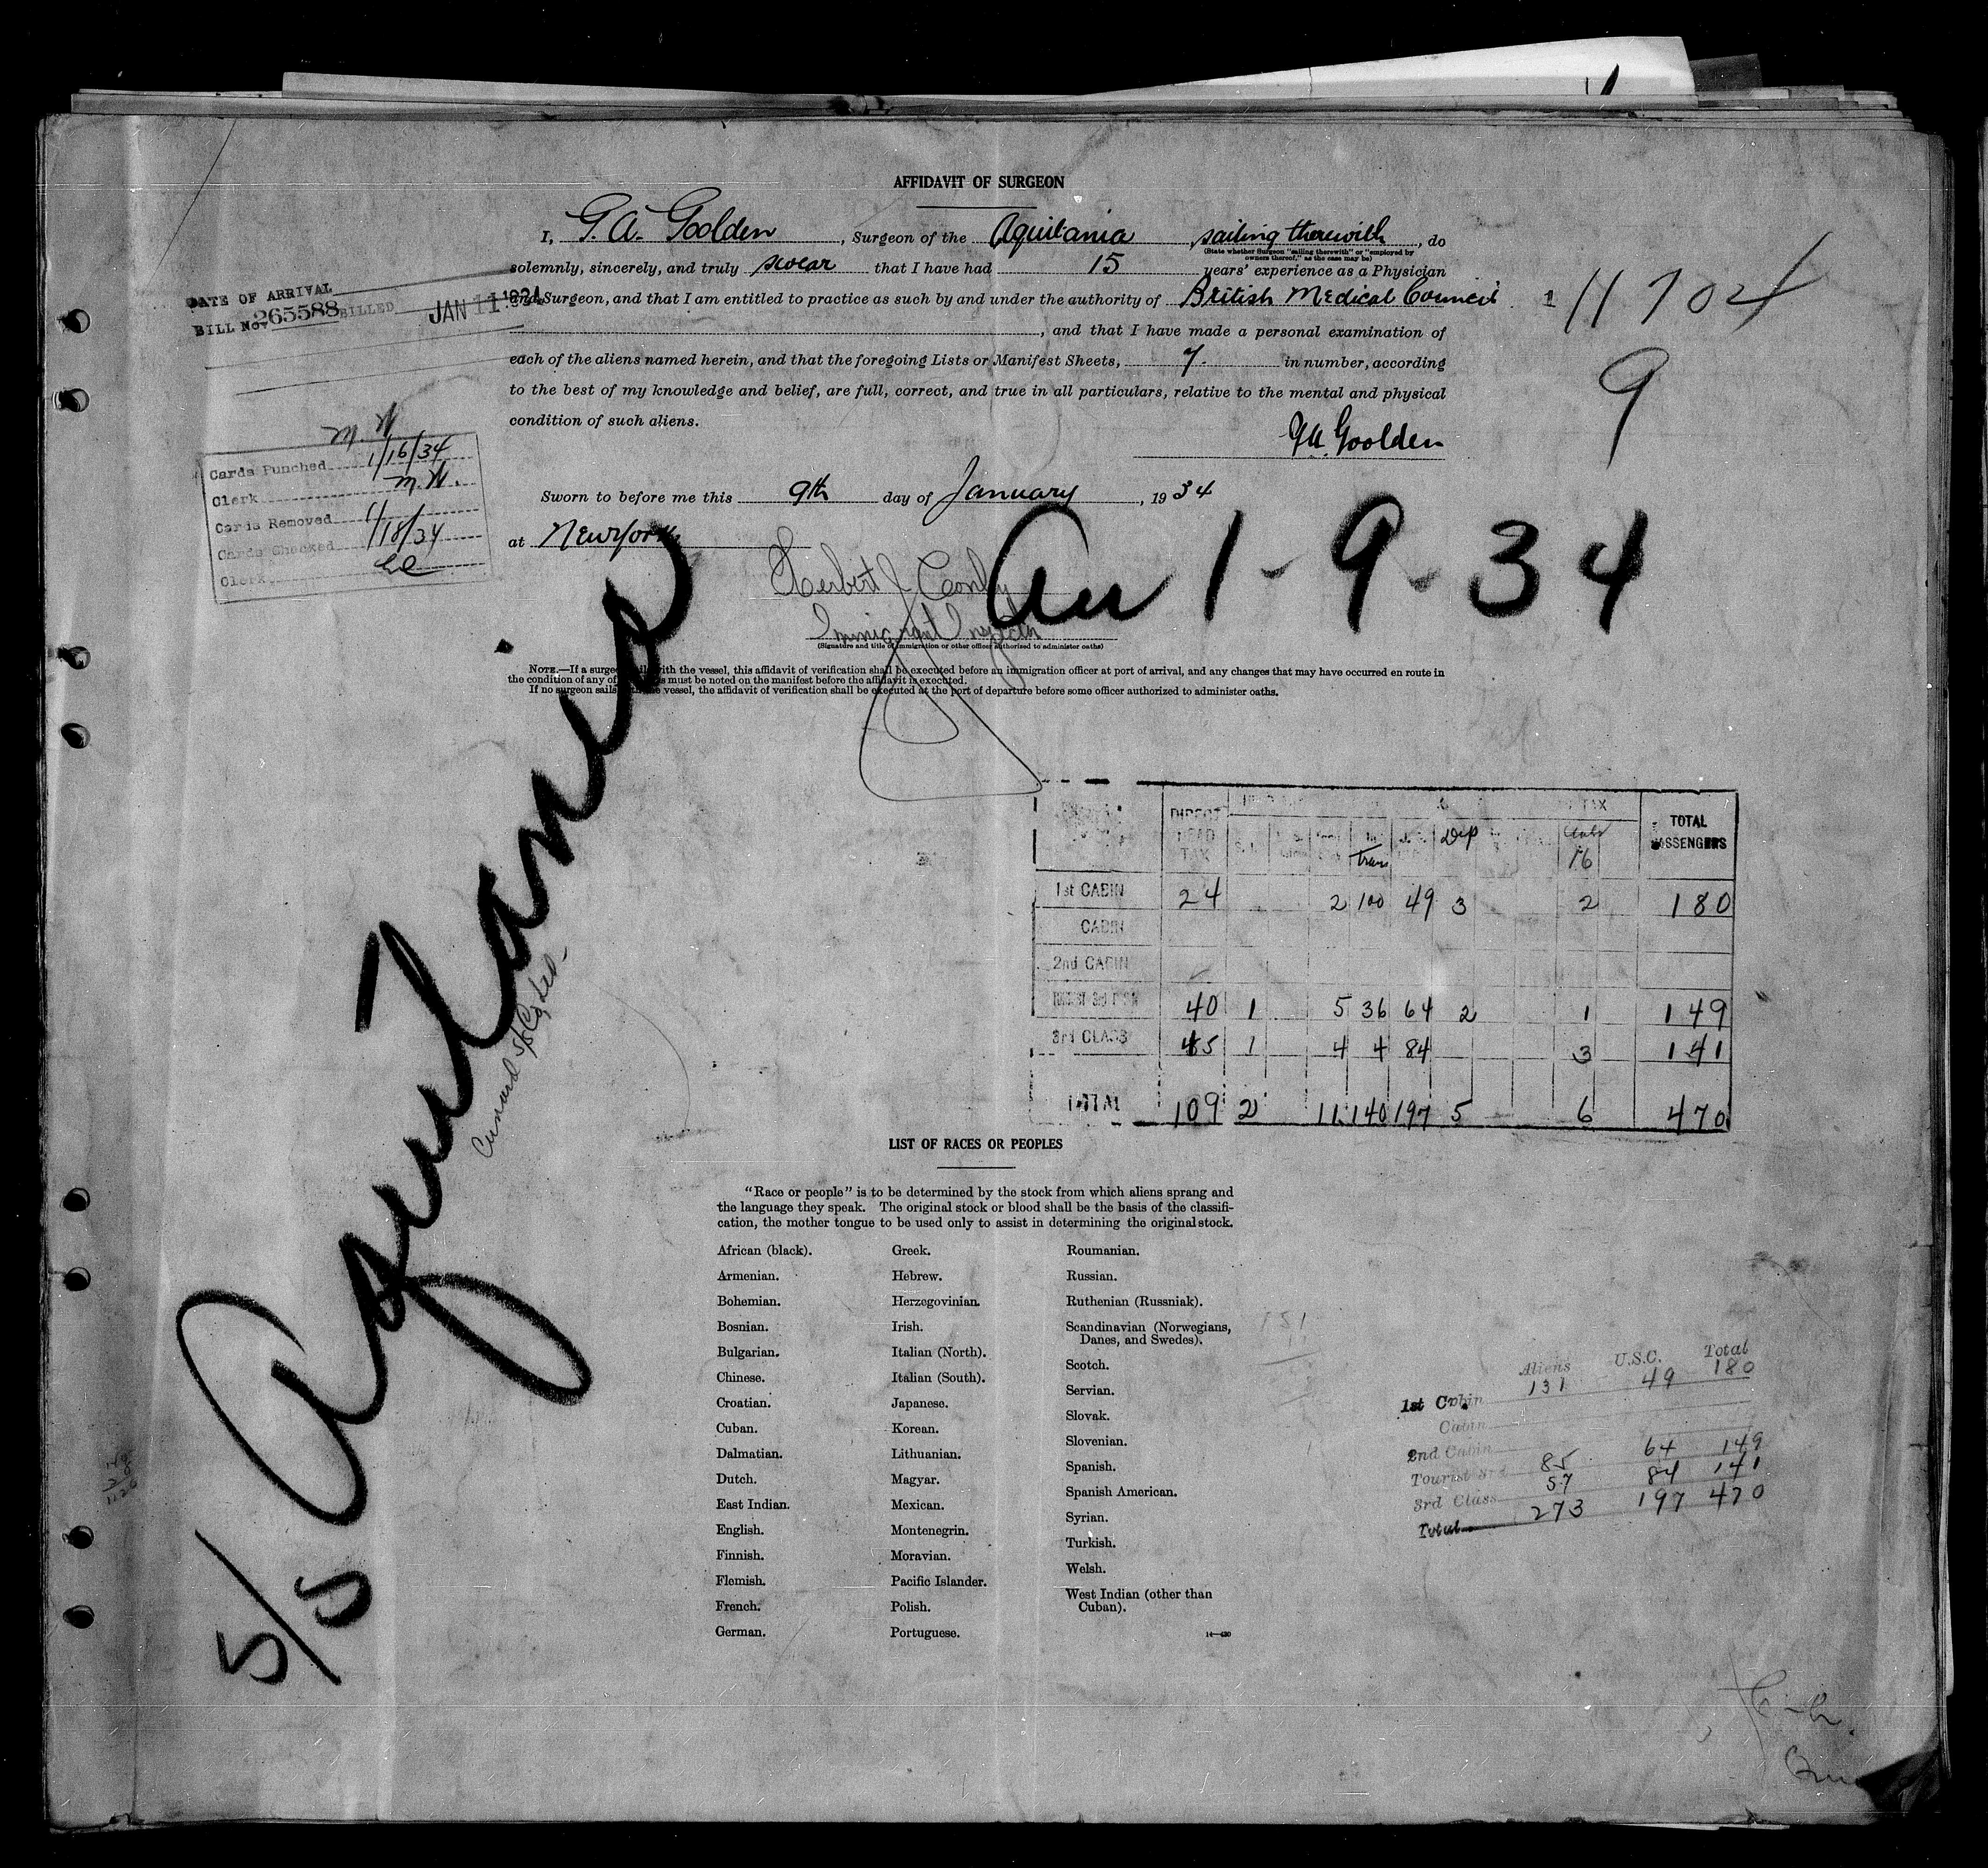 AFFIDAVIT OF SURGEON
I, G. A. Goolden, Surgeon of the Aquitania sailing therewith, do
(State whether Surgeon "sailing therewith" or "employed by
owners thereof," as the case may be)
solemnly, sincerely, and truly swear that I have had 15 years' experience as a Physician
and Surgeon, and that I am entitled to practice as such by and under the authority of British Medical Council
, and that I have made a personal examination of
each of the aliens named herein, and that the foregoing Lists or Manifest Sheets, 7. in number, according
to the best of my knowledge and belief, are full, correct, and true in all particulars, relative to the mental and physical
condition of such aliens.
G A. Goolden
Sworn to before me this 9th day of January, 19 34
at New York
Herbert J
Immigrant Inspector
(Signature and title of immigration or other officer authorized to administer oaths)
NOTE.—If a surgeon sails with the vessel, this affidavit of verification shall be executed before an immigration officer at port of arrival, and any changes that may have occurred en route in
the condition of any of must be noted on the manifest before the affidavit is executed.
If no surgeon sails with the vessel, the affidavit of verification shall be executed at the port of departure before some officer authorized to administer oaths.
DATE OF ARRIVAL
BILL No. 265588 BILLED JAN 11 1934
11704
9
M. W
Cards Punched 1/16/34
Clerk M. W.
Cards Removed
Cards Checked 1/18/34
Clerk
Arr 1-9-34
S/S Aquitania
Cunard SS Co Ltd.
DIRECT HEAD TAX Trans Dep TAX 16 TOTAL PASSENGERS
1st CABIN 24 2 100 49 3 2 180
CABIN
2nd CABIN
TOURIST 3rd CABIN 40 1 5 36 64 2 1 149
3rd CLASS 45 1 4 4 84 3 141
TOTAL 109 2 11 140 197 5 6 470
LIST OF RACES OR PEOPLES
"Race or people" is to be determined by the stock from which aliens sprang and
the language they speak. The original stock or blood shall be the basis of the classifi-
cation, the mother tongue to be used only to assist in determining the original stock.
African (black).
Armenian.
Bohemian.
Bosnian.
Bulgarian.
Chinese.
Croatian.
Cuban.
Dalmatian.
Dutch.
East Indian.
English.
Finnish.
Flemish.
French.
German.
Greek.
Hebrew.
Herzegovinian.
Irish.
Italian (North).
Italian (South).
Japanese.
Korean.
Lithuanian.
Magyar.
Mexican.
Montenegrin.
Moravian.
Pacific Islander.
Polish.
Portuguese.
Roumanian.
Russian.
Ruthenian (Russniak).
Scandinavian (Norwegians,
Danes, and Swedes).
Scotch.
Servian.
Slovak.
Slovenian.
Spanish.
Spanish American.
Syrian.
Turkish.
Welsh.
West Indian (other than
Cuban).
14—430
151
Aliens U.S.C. Total
1st Cabin 131 49 180
Cabin
2nd Cabin
Tourist 3rd 85 64 149
3rd Class 57 84 141
Total 273 197 470